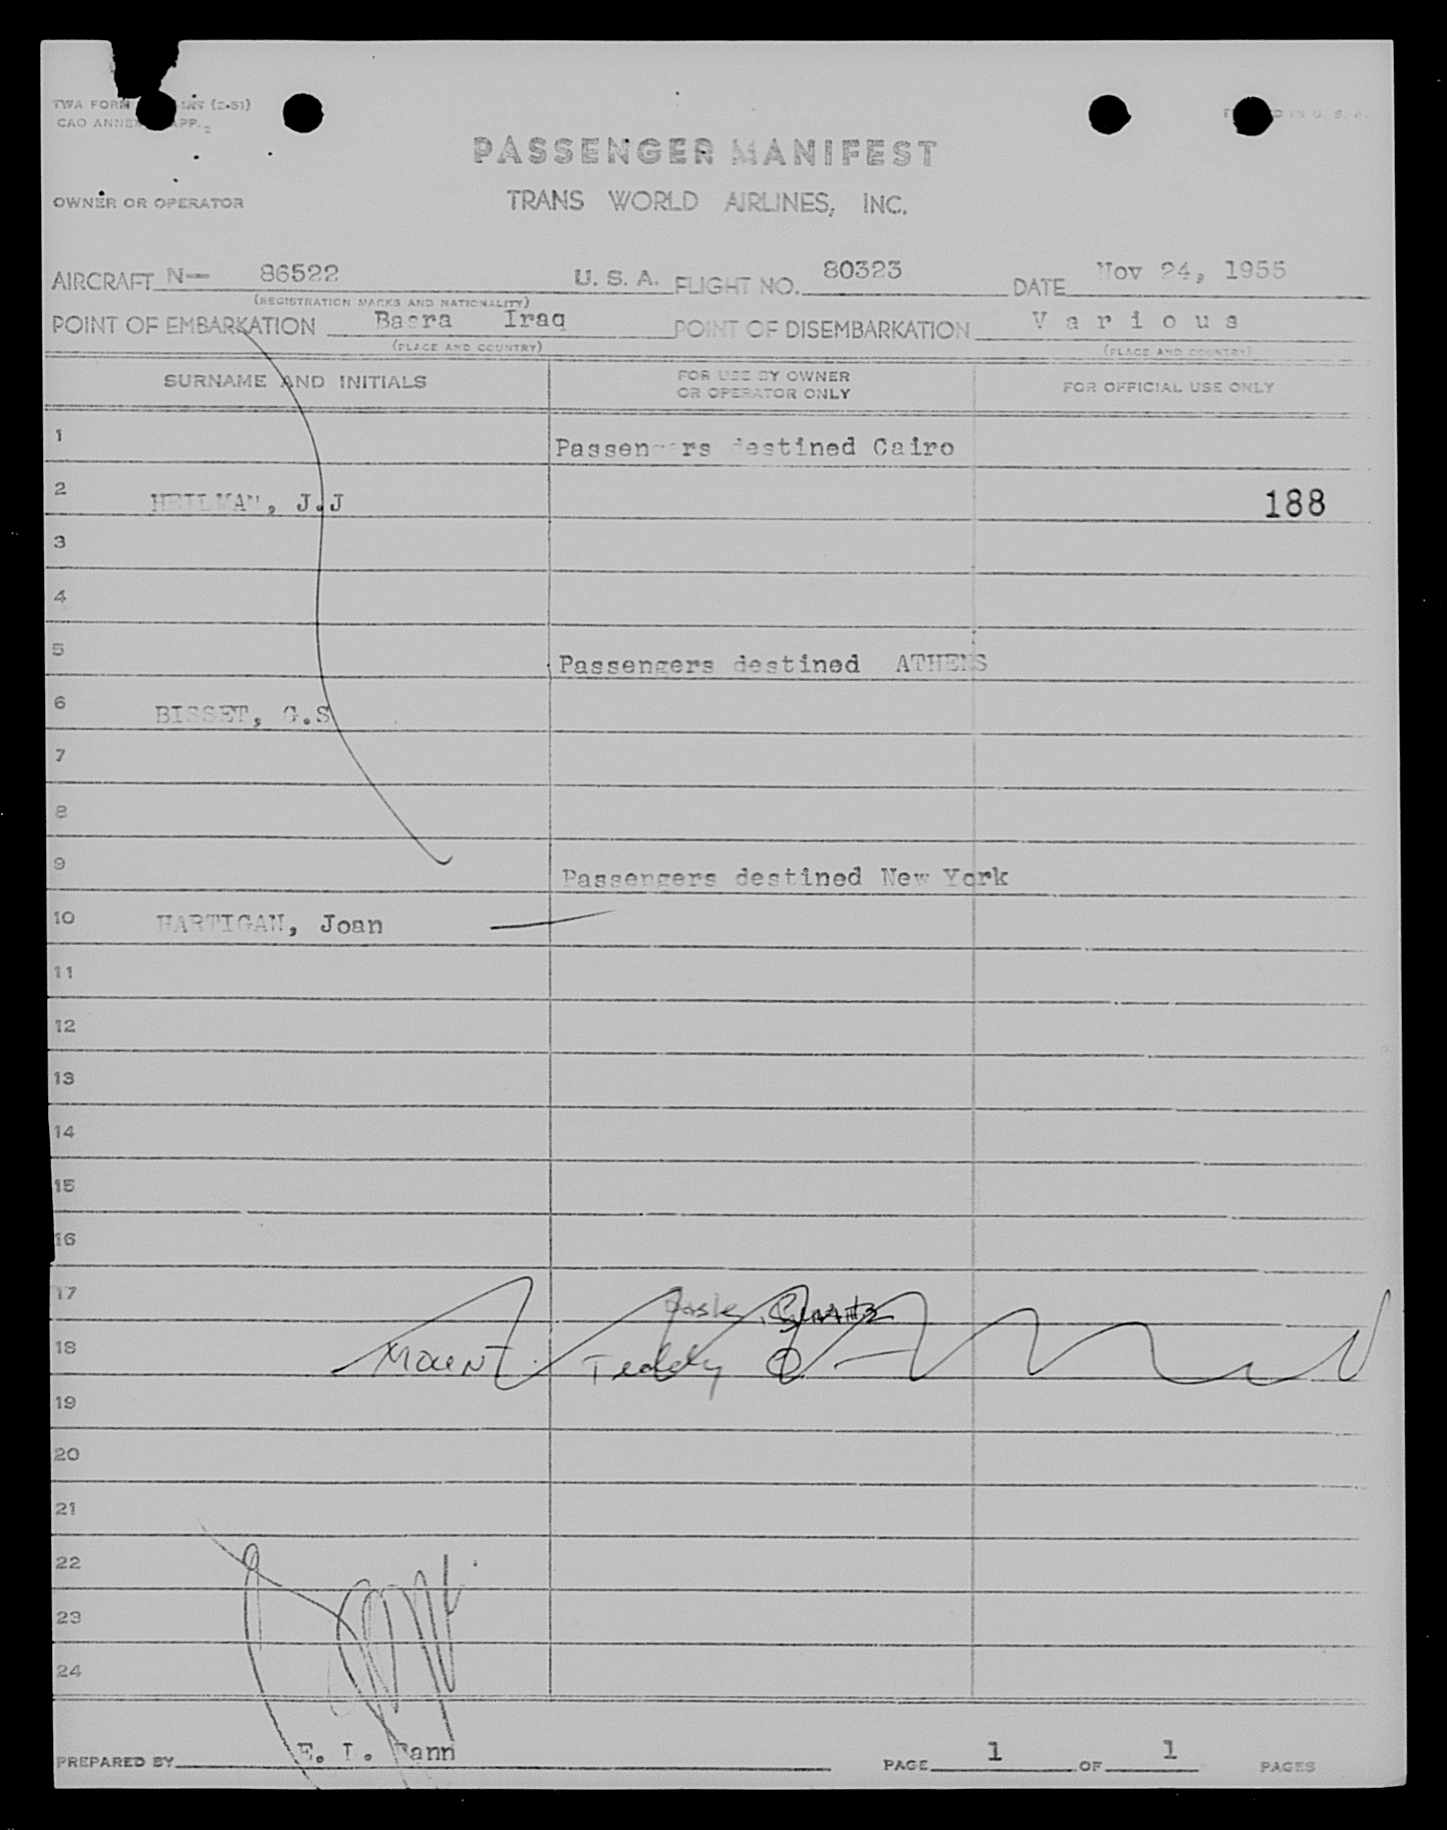 TWA FORM (2-51)
CAO ANNEX APP. 2
PASSENGER MANIFEST
OWNER OR OPERATOR
TRANS WORLD AIRLINES, INC.
AIRCRAFT N— 86522 U. S. A. FLIGHT NO. 80323 DATE Nov 24, 1955
(REGISTRATION MARKS AND NATIONALITY)
POINT OF EMBARKATION Basra Iraq POINT OF DISEMBARKATION Various
(PLACE AND COUNTRY) (PLACE AND COUNTRY)
SURNAME AND INITIALS FOR USE BY OWNER OR OPERATOR ONLY FOR OFFICIAL USE ONLY
1 Passengers destined Cairo
2 HEILMAN, J.J 188
3
4
5 Passengers destined ATHENS
6 BISSET, G.S
7
8
9 Passengers destined New York
10 HARTIGAN, Joan
11
12
13
14
15
16
17
18 Teddy
19
20
21
22
23
24
PREPARED BY E. L. PAGE 1 OF 1 PAGES